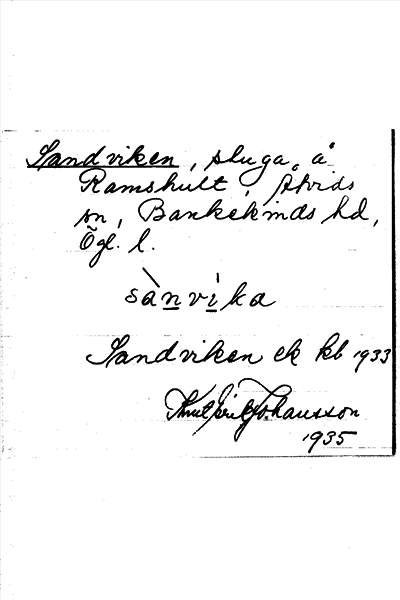 Sandviken, stuga å
Ramshult, Åtvids
sn, Bankekinds hd,
Ögl. l.
sànvika
Sandviken ek kb 1933
Knut Erik Johansson
1935